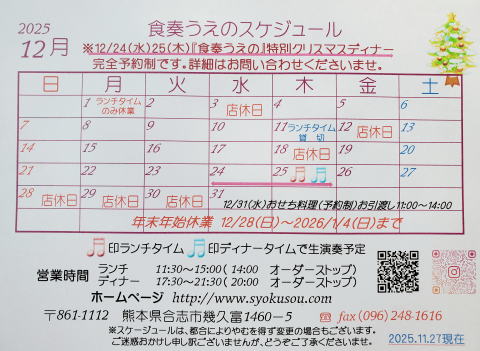 2025
12月
食奏うえのスケジュール
※12/24(水)25(木)『食奏うえの』特別クリスマスディナー
完全予約制です。詳細はお問い合わせくださいませ。
日 月 火 水 木 金 土
1 ランチタイムのみ休業 2 3 店休日 4 5 6
7 8 9 10 11 ランチタイム貸切 12 店休日 13
14 15 16 17 18 店休日 19 20
21 22 23 24 25 26 27
28 店休日 29 店休日 30 店休日 31
12/31(水)おせち料理(予約制)お引渡し11:00~14:00
年末年始休業 12/28(日)~2026/1/4(日)まで
印ランチタイム 印ディナータイムで生演奏予定
営業時間 ランチ 11:30~15:00(14:00 オーダーストップ)
ディナー 17:30~21:30(20:00 オーダーストップ)
ホームページ http://www.syokusou.com
〒861-1112 熊本県合志市幾久富1460-5 ☎ fax(096)248-1616
※スケジュールは、都合によりやむを得ず変更の場合もございます。
ご迷惑おかけし申し訳ございませんが、どうぞご了承くださいませ。
2025.11.27現在